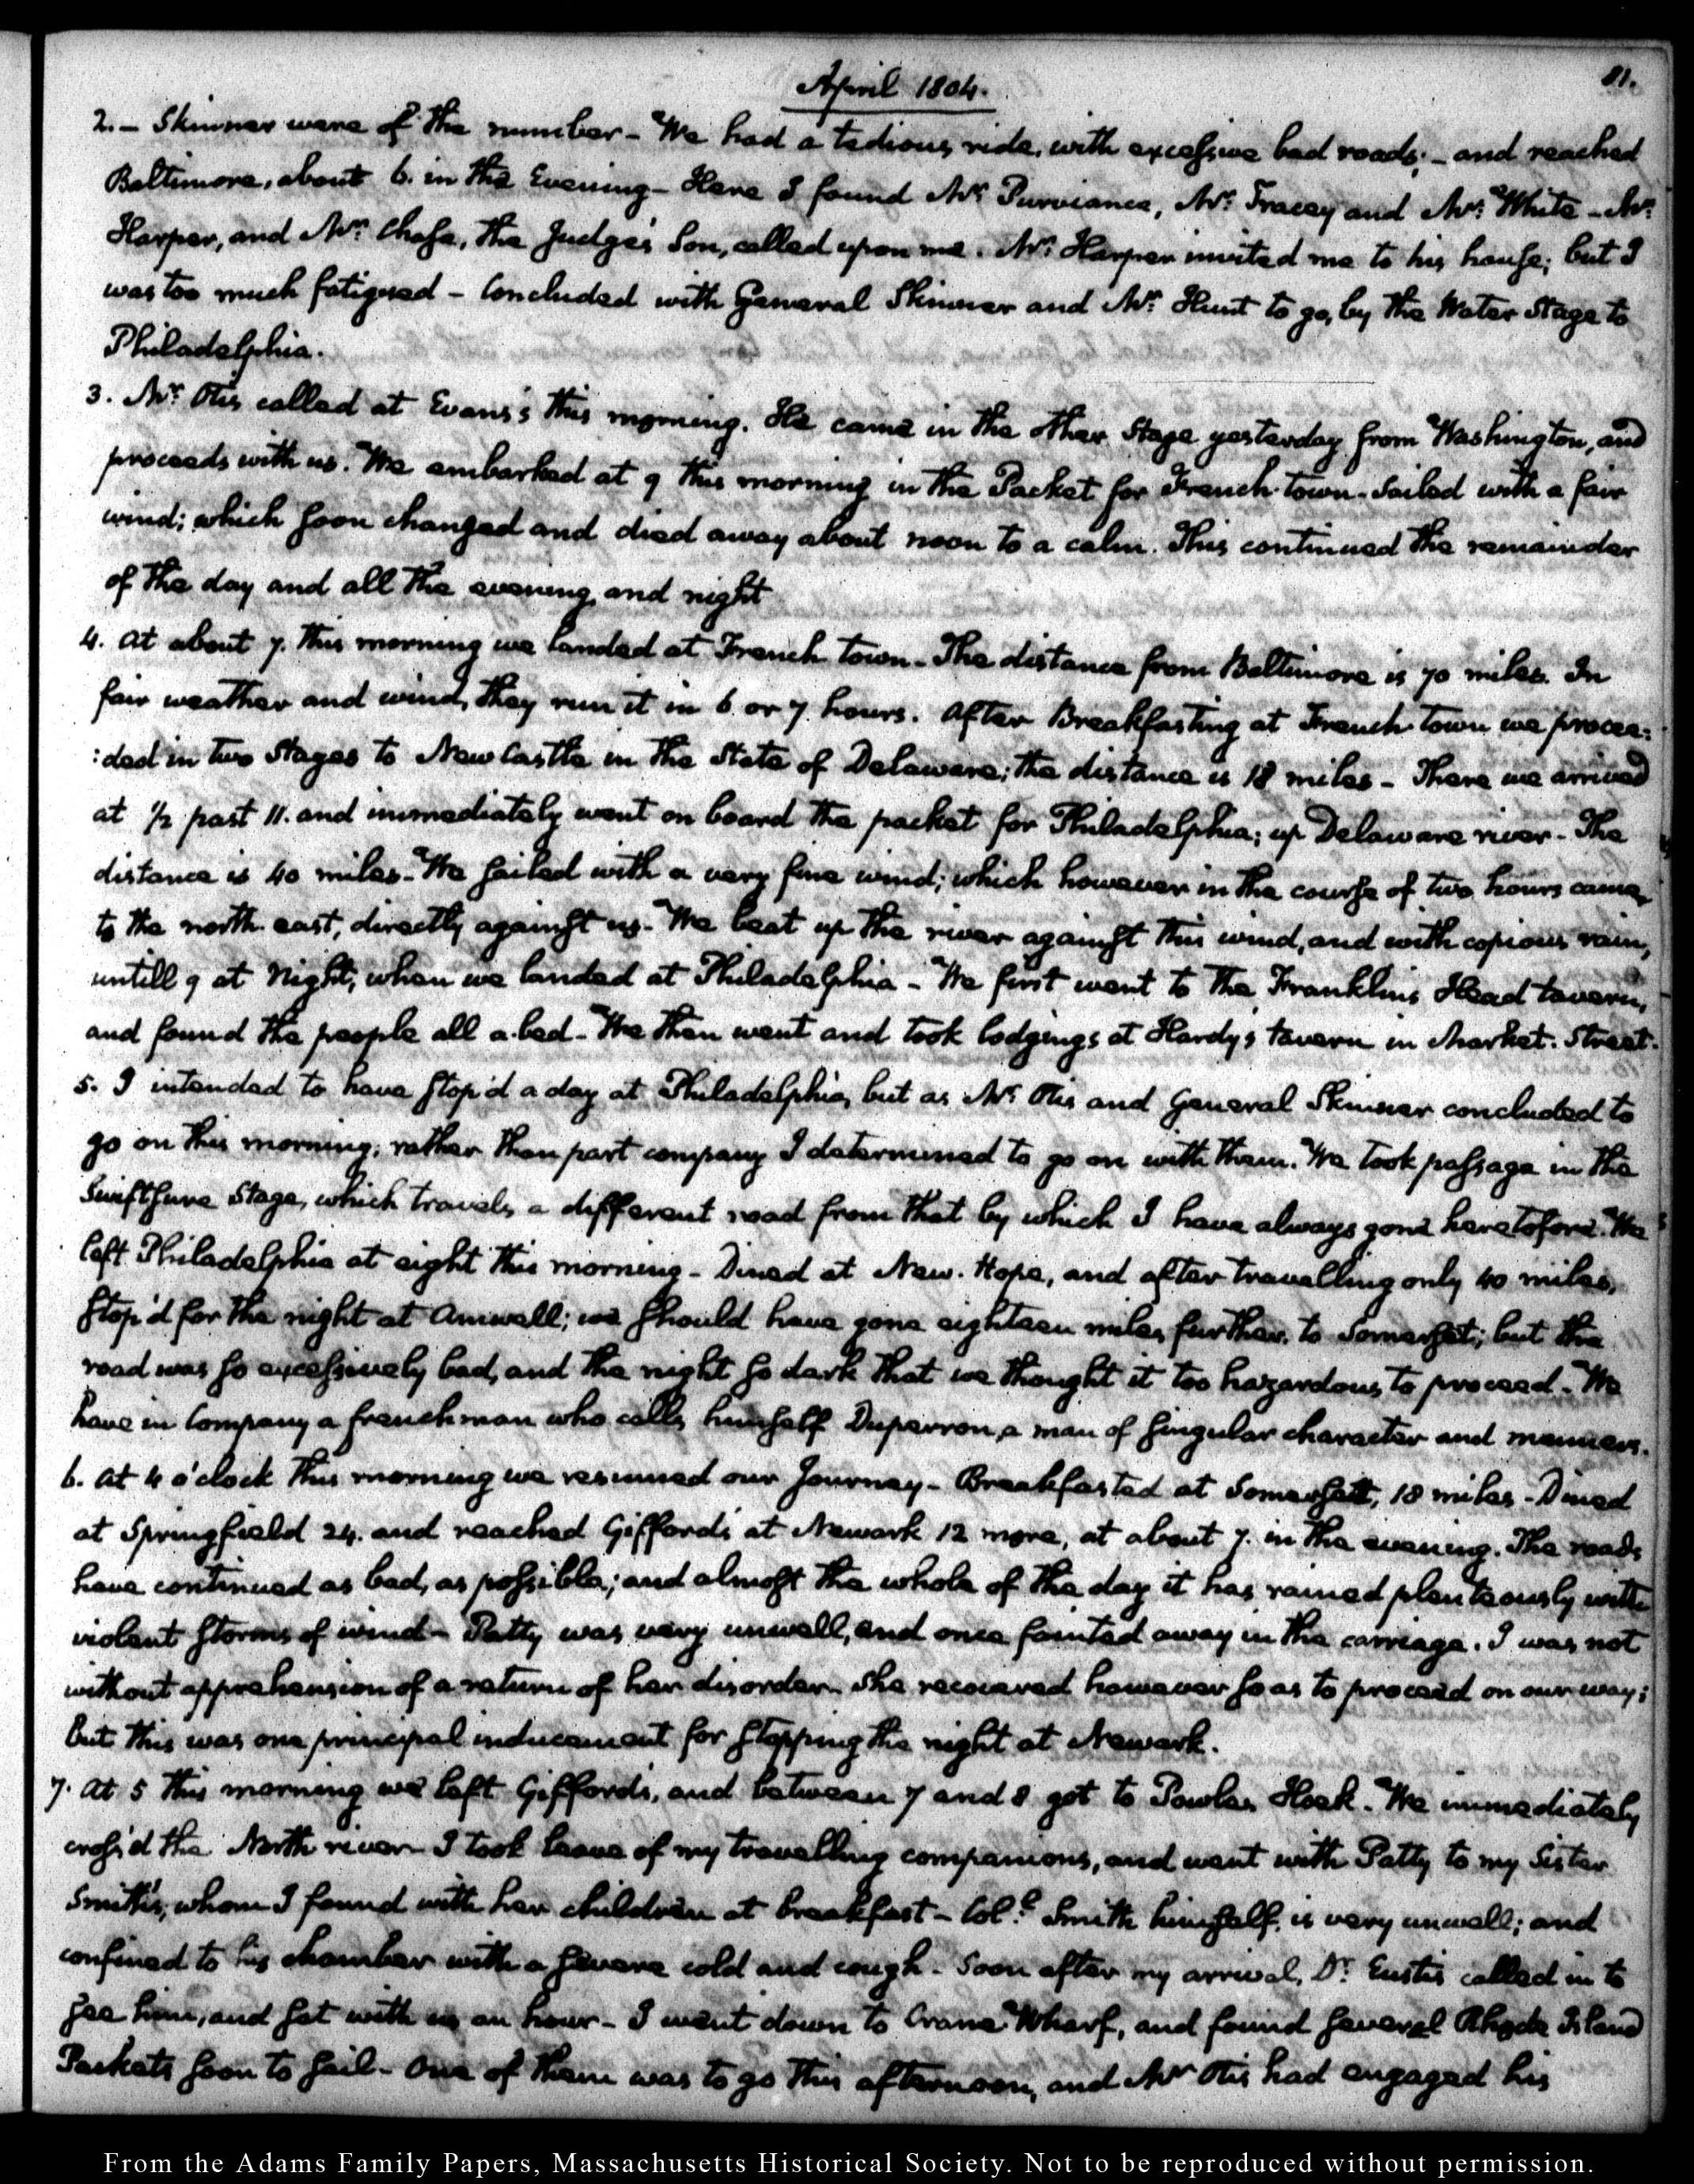 April 1804.
81.
2.– Skinner were of the number – We had a tedious ride, with excessive bad roads; – and reached
Baltimore, about 6. in the Evening – Here I found Mr. Purviance, Mr. Tracey and Mr. White – Mr.
Harper, and Mr. Chase, the Judge's Son, called upon me. Mr. Harper invited me to his house; but I
was too much fatigued – Concluded with General Skinner and Mr. Hunt to go, by the Water Stage to
Philadelphia.
3. Mr. Otis called at Evans's this morning. He came in the other Stage yesterday from Washington, and
proceeds with us. We embarked at 9 this morning in the Packet for French-town – Sailed with a fair
wind; which soon changed and died away about noon to a calm. This continued the remainder
of the day and all the evening, and night
4. At about 7. this morning we landed at French town – The distance from Baltimore is 70 miles. In
fair weather and wind, they run it in 6 or 7. hours. After Breakfasting at French-town we procee:
:ded in two Stages to New Castle in the State of Delaware; the distance is 18 miles – There we arrived
at 1/2 past 11. and immediately went on board the packet for Philadelphia; up Delaware river – The
distance is 40 miles – We sailed with a very fine wind; which however in the course of two hours came,
to the north-east, directly against us – We beat up the river against this wind, and with copious rain,
untill 9 at Night, when we landed at Philadelphia – We first went to the Franklins Head tavern,
and found the people all a-bed – We then went and took lodgings at Hardy's tavern in Market-Street.
5. I intended to have stop'd a day at Philadelphia, but as Mr. Otis and General Skinner concluded to
go on this morning; rather than part company I determined to go on with them. We took passage in the
Swiftsure Stage, which travels, a different road from that by which I have always gone heretofore. We
left Philadelphia at eight this morning – Dined at New-Hope, and after travelling only 40 miles,
stop'd for the night at Amwell; we should have gone eighteen miles further, to Somerset; but the
road was so excessively bad, and the night so dark that we thought it too hazardous, to proceed – We
have in Company a frenchman who calls, himself Duperron, a man of singular character and manners.
6. At 4 o'clock this morning we resumed our Journey – Breakfasted at Somersett, 18 miles – Dined
at Springfield 24. and reached Gifford's at Newark 12 more, at about 7. in the evening. The roads
have continued as bad, as possible; and almost the whole of the day it has rained plenteously with
violent storms of wind – Patty was very unwell, and once fainted away in the carriage. I was not
without apprehension of a return of her disorder – She recovered however so as to proceed on our way;
but this was one principal inducement for stopping the night at Newark.
7. At 5 this morning we left Gifford's, and between 7 and 8 got to Powles Hook. We immediately
cross'd the North river – I took leave of my travelling companions, and went with Patty to my Sister
Smith's, whom I found with her children at breakfast – Coll. Smith himself, is very unwell; and
confined to his chamber with a severe cold and cough – Soon after my arrival, Dr. Eustis called in to
see him, and sat with us an hour – I went down to Crane Wharf, and found several Rhode Island
Packets soon to sail – One of them was to go this afternoon, and Mr. Otis had engaged his
From the Adams Family Papers, Massachusetts Historical Society. Not to be reproduced without permission.